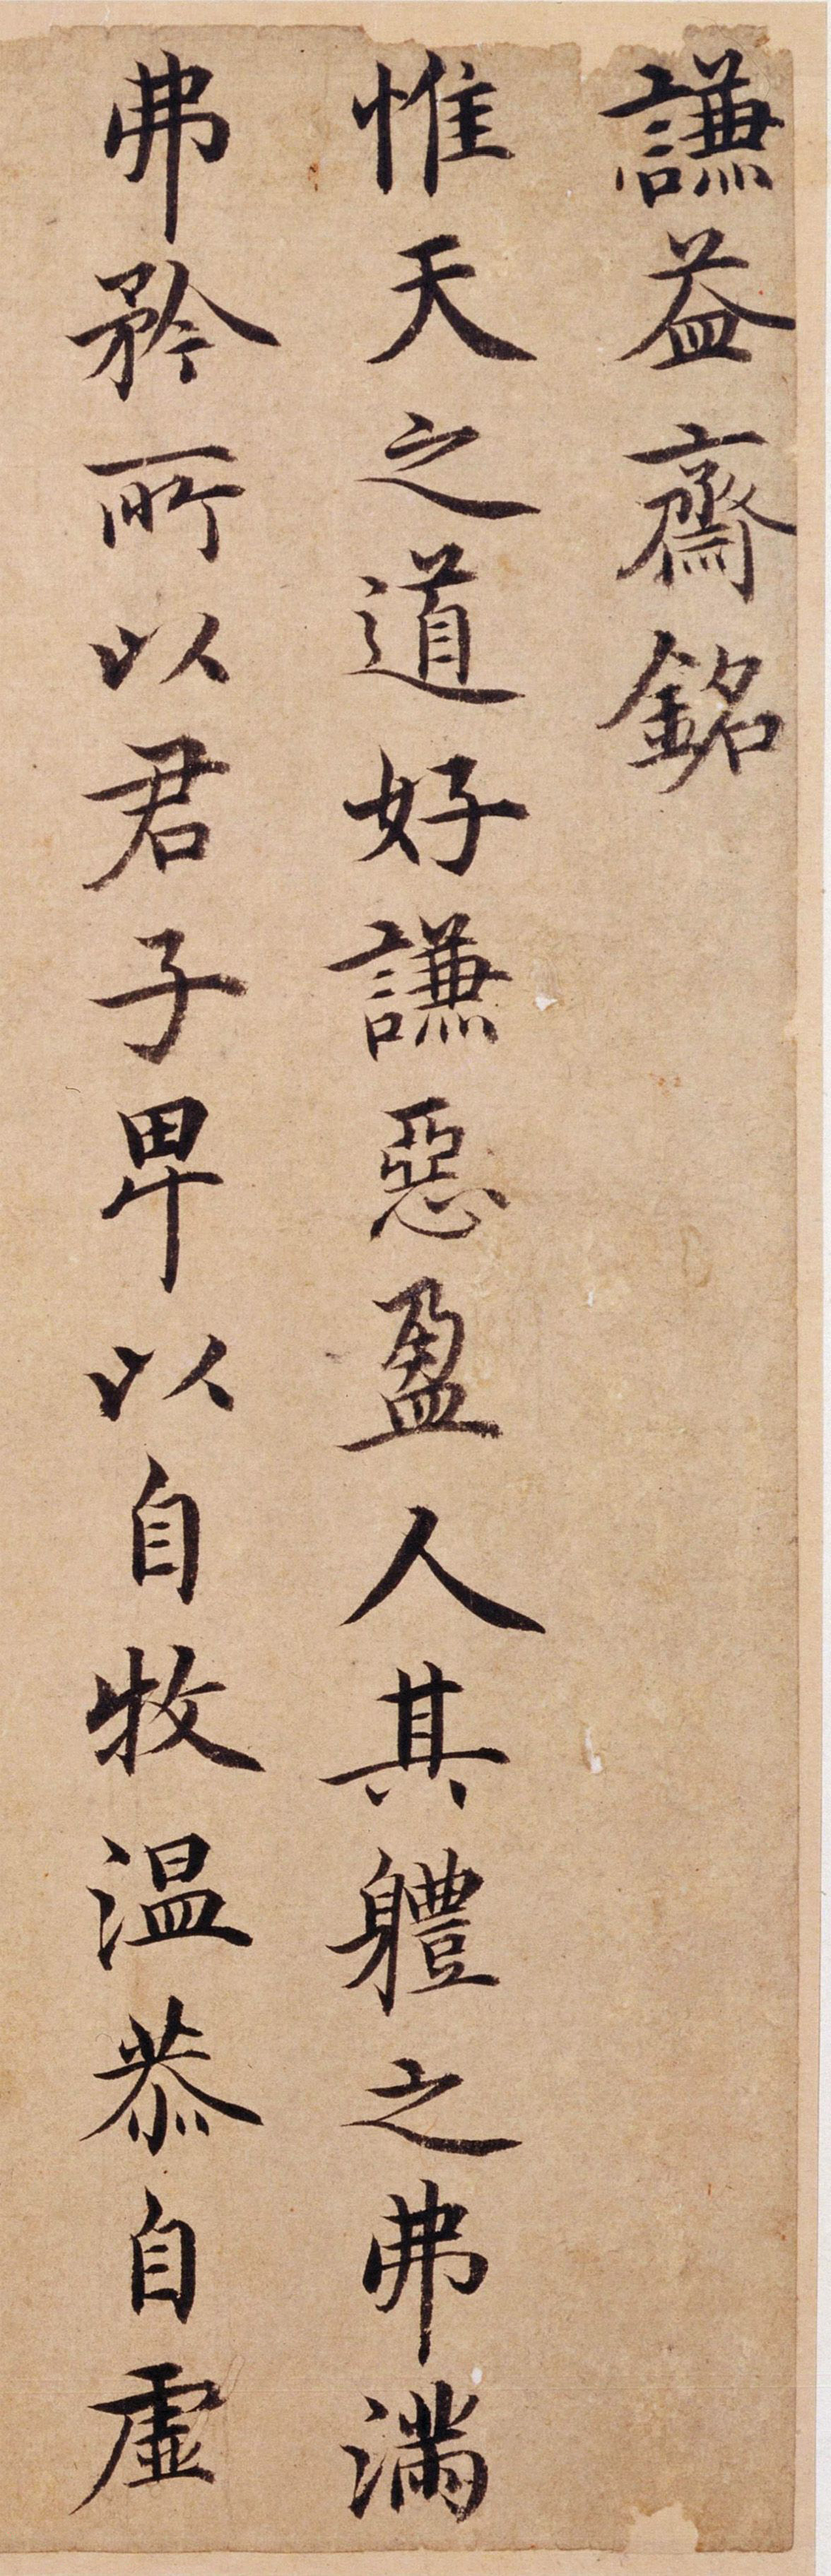 謙益齋銘
惟天之道好謙惡盈人其軆之弗滿
弗矜所以君子卑以自牧温恭自虛